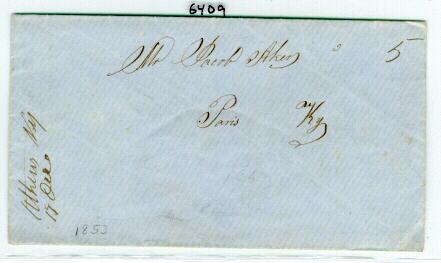 6409
Mr Jacob Aker
5
Paris Ky
Athens Ky
17 Dec
1853